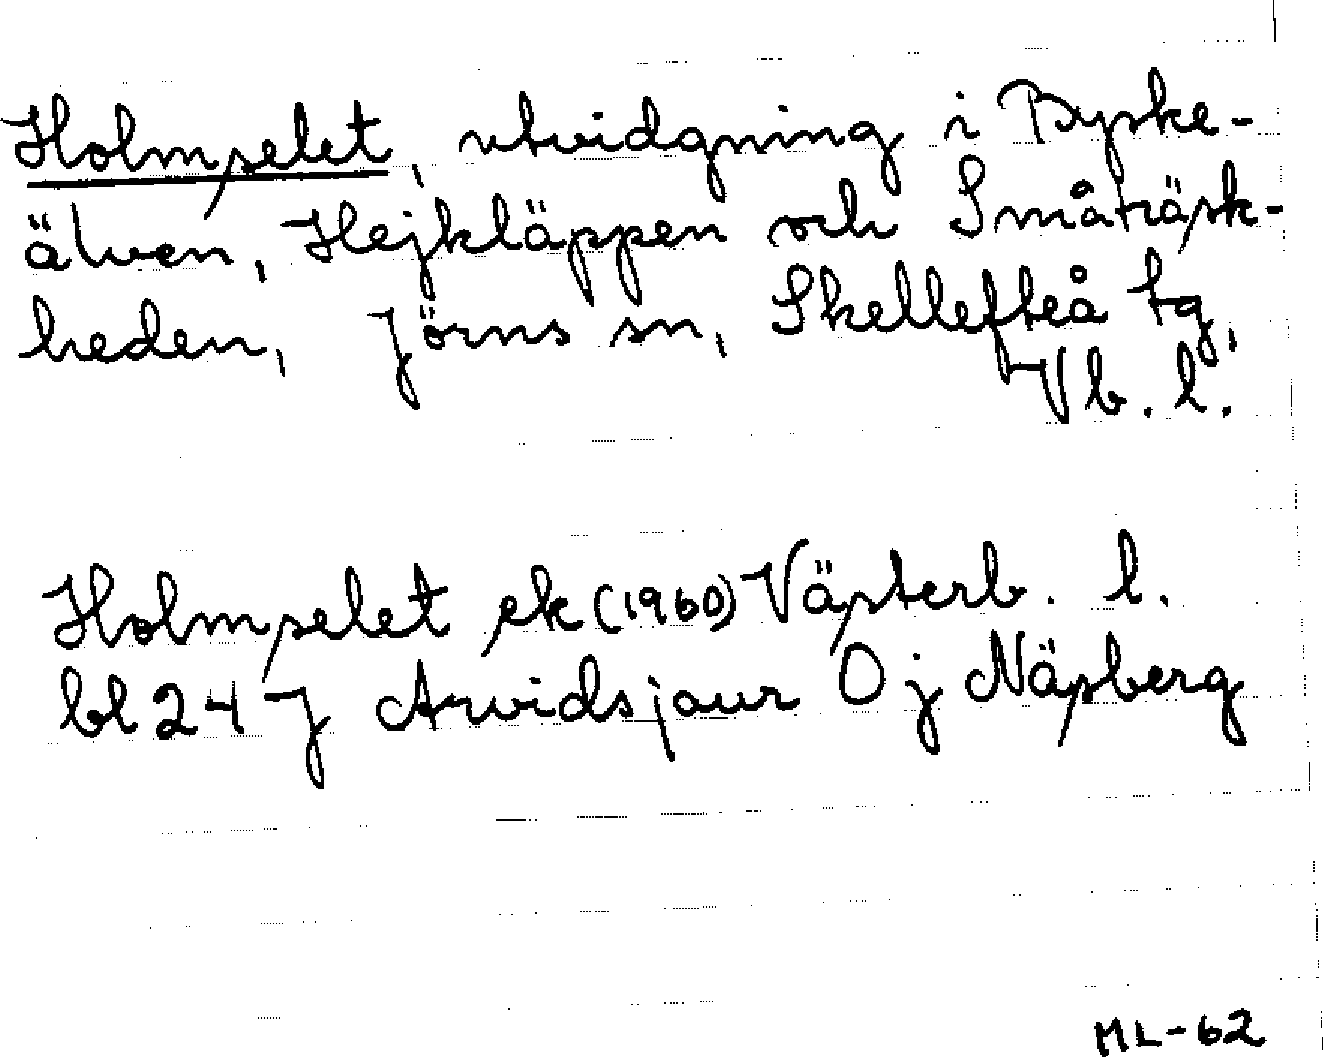 Holmselet, utvidgning i Byske-
älven, Hejkläppen och Småträsk-
heden, Jörns sn, Skellefteå tg,
Vb. l.
Holmselet ek (1960) Västerb. l.
bl 24 J Arvidsjaur 0 j Näsberg
ML-62